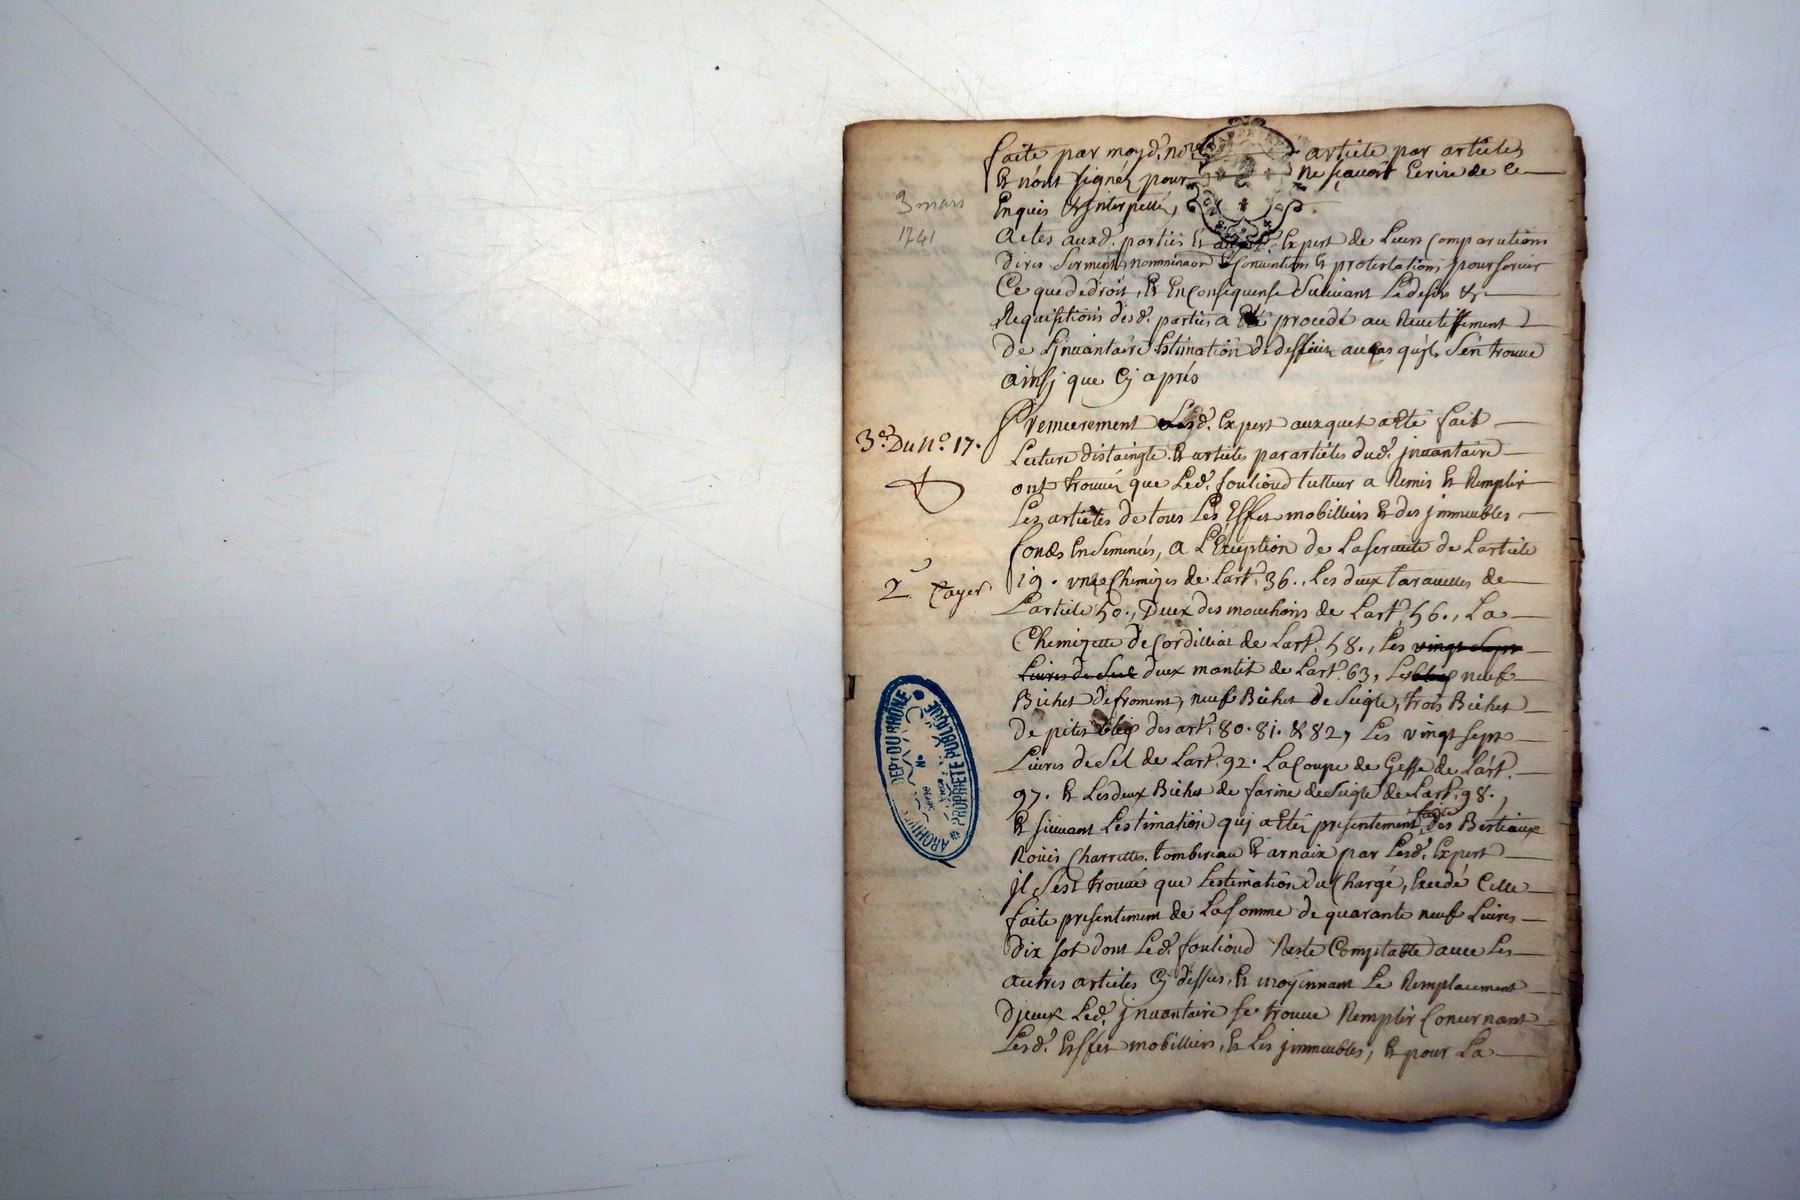 faite par moyd. no.re article par articles
Et n'ont signéz pour ne sçavoir Ecrire de ce
Enquis & Jnterpellé,
3 mars
1741
Actes auxd. parties Et Expert de Leurs Comparutions
dires Serment, nomminaon Conventions & protestations pour servir
Ce que de droit, & En Consequense Suivant Le desir &
Requisitions desd. parties a Eté procedé au Recutissement
de L'jnvantaire Estimation de deffieur au Cas qu'jl s'en trouve
ainsj que Cj aprés
3e. Du No. 17.
Premierement Lesd. Expert auxquet a Eté fait
Lecture distaingte & articles par articles dud. jnvantaire
ont trouvéz que Led. fouilloud tutteur a Remis & Remplir
Les articles de tous Les Effet mobilliers & des jmmeubles
fonds En Semencés, A L'Exception de La servante de L'article
2e Cayer
19. une Chemizes de L'art. 36., Les deux taravelles de
L'article 50., Deux des mouchoirs de L'art. 56., La
Chemizette de Cordilliat de L'art. 58., Les vingt Sept
Livres de Sel deux mantit de L'art. 63, Les bleds neuf
Bichet de froment, neuf Bichet de Seigle, trois Bichet
de petit bled des art. 80. 81. & 82, Les vingt sept
Livres de Sel de L'art. 92. La Coupe de Gesse de L'art.
97. & Les deux Bichet de farine de Seigle de L'art. 98.,
& suivant L'estimation quj a Etée presentement faite des Bestiaux
Rouës Charrettes. tombereau & arnaix par Lesd. Expert
jl s'est trouvé que L'estimation du Chargé, Excedé Celle
faite presentement de La somme de quarante neuf Livres
Dix sot dont Led. fouilloud Reste Comptable avec Les
autres articles Cj dessus, & moyennant Le Remplacement
D'jceux Led. jnvantaire se trouve Remplir Concernant
Lesd. Effet mobilliers, & Les jmmeubles, & pour La
ARCHIVES DEPT DU RHÔNE
PROPRIÉTÉ PUBLIQUE